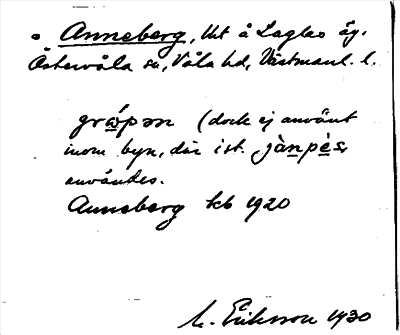 Anneberg, Ut å Lagbo äg.
Östervåla sn, Våla hd, Västmanl. l.
grópən (dock ej använt
inom byn, där ist. jànpès
användes.
Anneberg kb 1920
Eriksson 1930